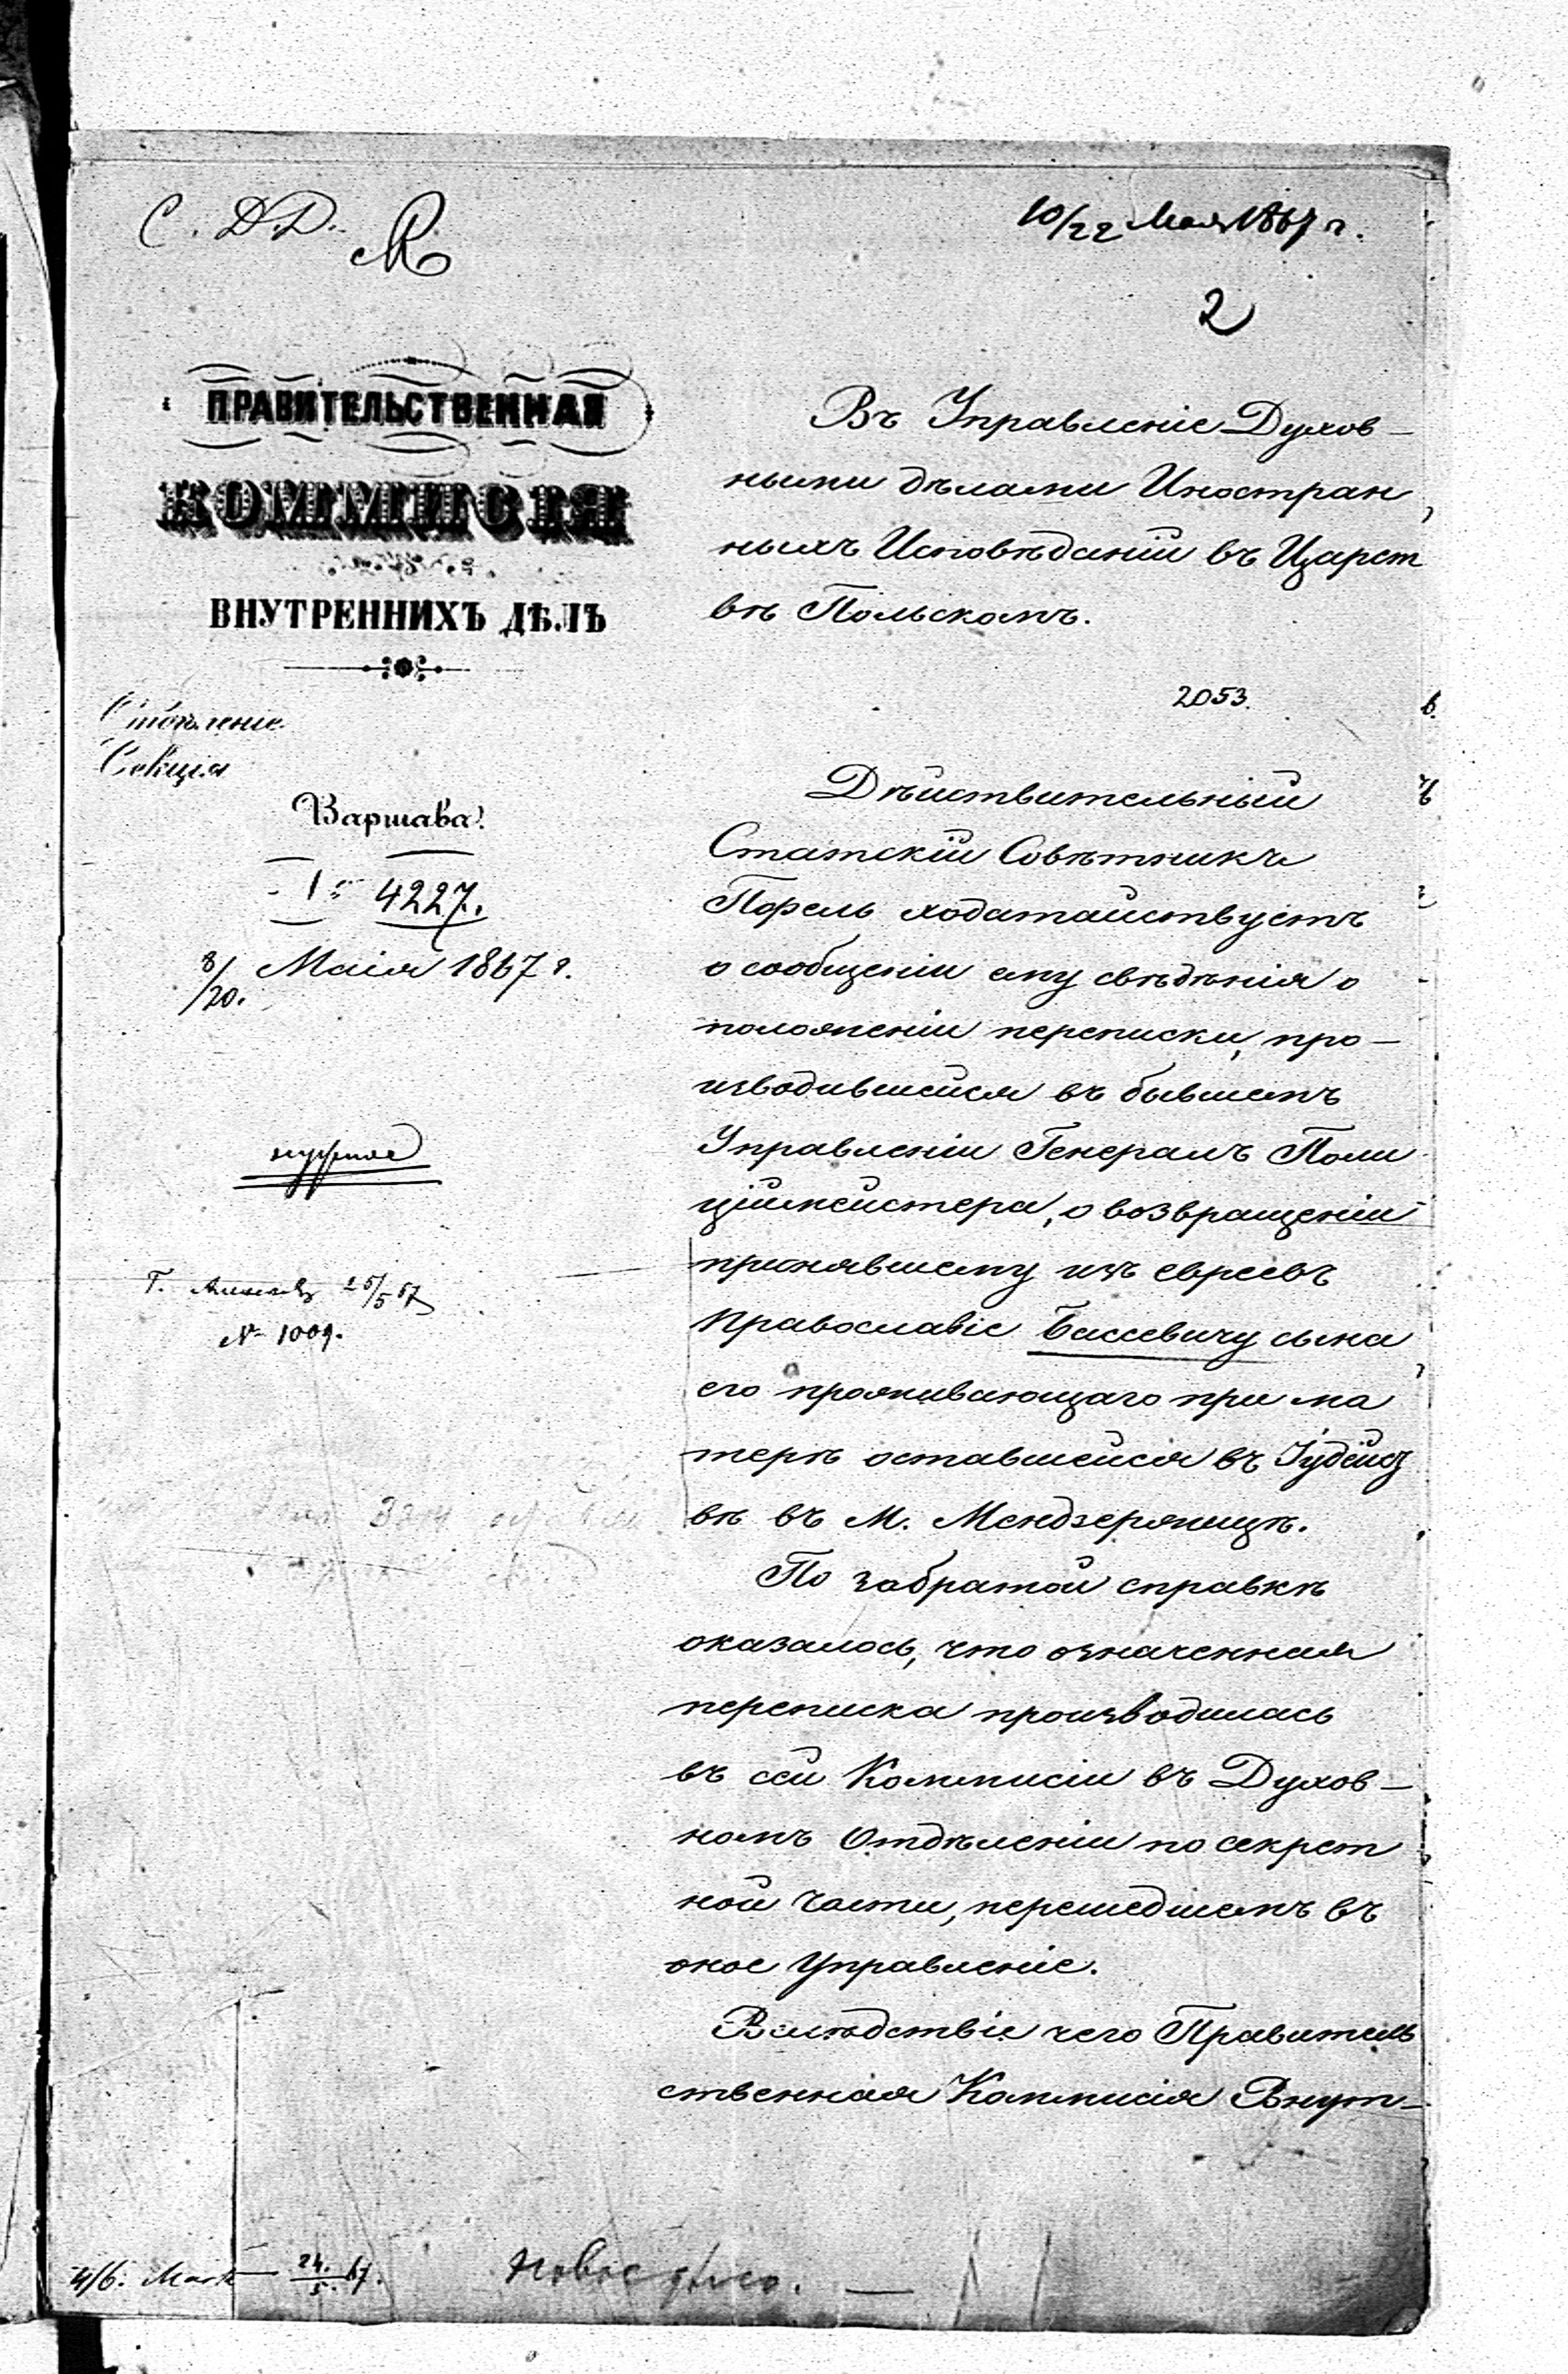 С. Д. Д.
10/22 Мая 1867 г.
2
ПРАВИТЕЛЬСТВЕННАЯ
КОММИСІЯ
ВНУТРЕННИХЪ ДѢЛЪ
Отдѣленіе
Секція
Варшава
4227.
8/20. Маія 1867 г.
нужное
Г. 25/5 67
№ 1009.
Въ Управленіе Духов-
ными дѣлами Иностран
ныхъ Исповѣданій въ Царст
вѣ Польскомъ.
2053.
Дѣйствительный
Статскій Совѣтникъ
ходатайствуетъ
о сообщеніи ему свѣдѣнія о
положеніи переписки, про-
изводившейся въ бывшемъ
Управленіи Генералъ Поли
ціймейстера, о возвращеніи
принявшему изъ евреевъ
Православіе Бассевичу сына
его проживающаго при ма
терѣ оставшейся въ Іудейст
вѣ въ М. Мендзержицѣ.
По забратой справкѣ
оказалось, что означенная
переписка производилась
въ сей Коммисіи въ Духов-
номъ Отдѣленіи по секрет
ной части, перешедшемъ въ
оное Управленіе.
Вслѣдствіе чего Правитель
ственная Коммисія Внут-
24./5. 67.
Новое дѣло.